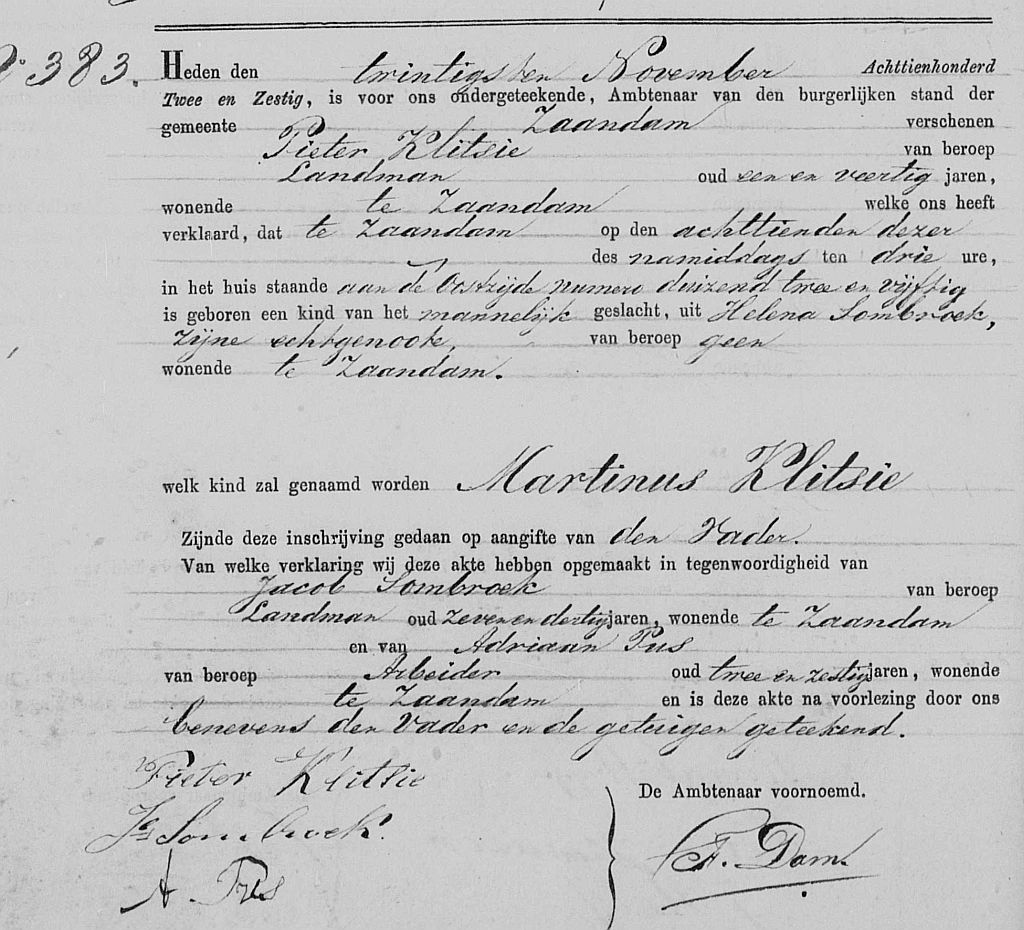 No. 383. Heden den twintigsten November Achttienhonderd
Twee en Zestig, is voor ons ondergeteekende, Ambtenaar van den burgerlijken stand der
gemeente Zaandam verschenen
Pieter Klitsie van beroep
Landman oud een en veertig jaren,
wonende te Zaandam welke ons heeft
verklaard, dat te Zaandam op den achttienden dezer
des namiddags ten drie ure,
in het huis staande aan de Oostzijde numero duizend twee en vijftig
is geboren een kind van het mannelijk geslacht, uit Helena Sombroek,
zijne echtgenoote, van beroep geen
wonende te Zaandam.
welk kind zal genaamd worden Martinus Klitsie
Zijnde deze inschrijving gedaan op aangifte van den Vader.
Van welke verklaring wij deze akte hebben opgemaakt in tegenwoordigheid van
Jacob Sombroek van beroep
Landman oud zeven en dertig jaren, wonende te Zaandam
en van Adriaan Pus
van beroep Arbeider oud twee en zestig jaren, wonende
te Zaandam en is deze akte na voorlezing door ons
benevens den Vader en de getuigen geteekend.
Pieter Klitsie
De Ambtenaar voornoemd.
Jb Sombroek.
F. Dam.
A. Pus